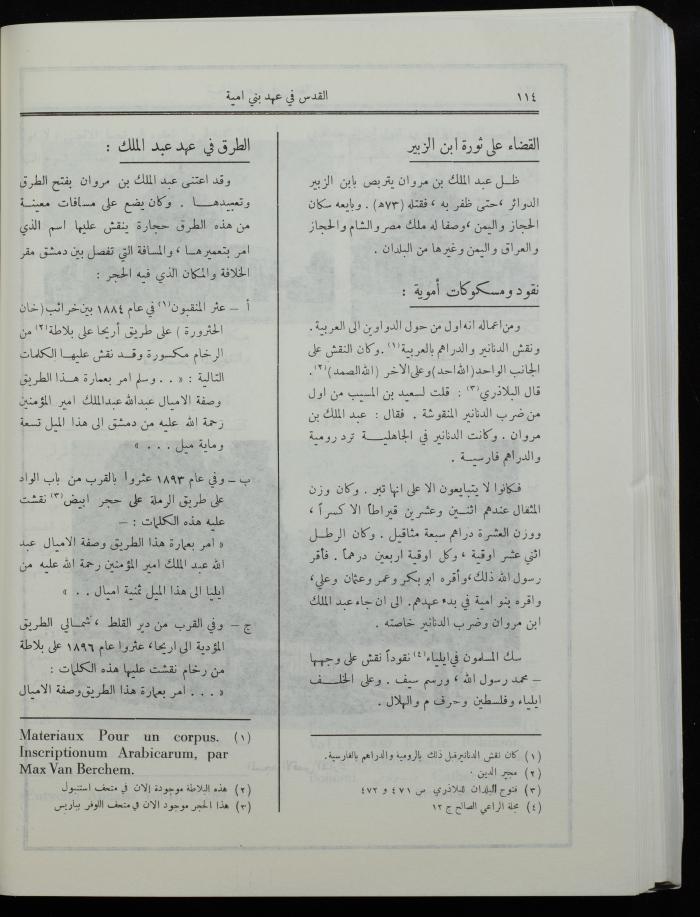 ١١٤
القدس في عهد بني امية
القضاء على ثورة ابن الزبير
ظـل عبد الملك بن مروان يتربص بابن الزبير
الدوائر ، حتى ظفر به ، فقتله (٧٣ه) . وبايعه سكان
الحجاز واليمن ، وصفا له ملك مصر والشام والحجاز
والعراق واليمن وغيرها من البلدان .
نقود ومسكوكات أموية :
ومن اعماله انه اول من حول الدواوين الى العربية .
ونقش الدنانير والدراهم بالعربية (١) . وكان النقش على
الجانب الواحد (الله احد) وعلى الآخر (الله الصمد) (٢) .
قال البلاذري (٣) : قلت لسعيد بن المسيب من اول
من ضرب الدنانير المنقوشة . فقال : عبد الملك بن
مروان . وكانت الدنانير في الجاهليـــة ترد رومية
والدراهم فارسيـة .
فكانوا لا يتبايعون الا على انها تبر . وكان وزن
المثقال عندهم اثنـين وعشرين قيراطاً الا كسراً ،
ووزن العشرة دراهم سبعة مثاقيل . وكان الرطـل
اثني عشر اوقية ، وكل اوقية اربعين درهماً . فأقر
رسول الله ذلك، وأقره ابو بكر وعمر وعثمان وعلي،
واقره بنو امية في بدء عهدهم. الى ان جاء عبد الملك
ابن مروان وضرب الدنانير خاصته .
سك المسلمون في ايلياء (٤) نقوداً نقش على وجهها
– محمد رسول الله ، ورسم سيف . وعلى الخلـــف
ايلياء وفلسطين وحرف م والهلال .
(١) كان نقش الدنانير قبل ذلك بالرومية والدراهم بالفارسية.
(٢) مجير الدين .
(٣) فتوح البلدان للبلاذري ص ٤٧١ و ٤٧٢
(٤) مجلة الراعي الصالح ج ١٢
الطرق في عهد عبد الملك :
وقد اعتنى عبد الملك بن مروان بفتح الطرق
وتعبيدهــا . وكان يضع على مسافات معينـة
من هذه الطرق حجارة ينقش عليها اسم الذي
امر بتعميرهـا ، والمسافة التي تفصل بين دمشق مقر
الخلافة والمكان الذي فيه الحجر :
أ – عثر المنقبون (١) في عام ١٨٨٤ بين خرائب (خان
الحثرورة ) على طريق أريحا على بلاطة (٢) من
الرخام مكسورة وقـد نقش عليهـا الكلمات
التالية : « . . وسلم امر بعمارة هـذا الطريق
وصفة الاميال عبدالله عبدالملك امير المؤمنين
رحمة الله عليه من دمشق الى هذا الميل تسعة
وماية ميل . . . »
ب – وفي عام ١٨٩٣ عثروا بالقرب من باب الواد
على طريق الرملة على حجر ابيض (٣) نقشت
عليه هذه الكلمات : –
« امر بعمارة هذا الطريق وصفة الاميال عبد
الله عبد الملك امير المؤمنين رحمة الله عليه من
ايليا الى هذا الميل ثمنية اميال . . »
ج – وفي القرب من دير القلط ، شمـالي الطريق
المؤدية الى اريحا، عثروا عام ١٨٩٦ على بلاطة
من رخام نقشت عليها هذه الكلمات :
« . . . امر بعمارة هذا الطريق وصفة الاميال
(١) Materiaux Pour un corpus.
Inscriptionum Arabicarum, par
Max Van Berchem.
(٢) هذه البلاطة موجودة الان في متحف استنبول
(٣) هذا الحجر موجود الان في متحف اللوفر بباريس